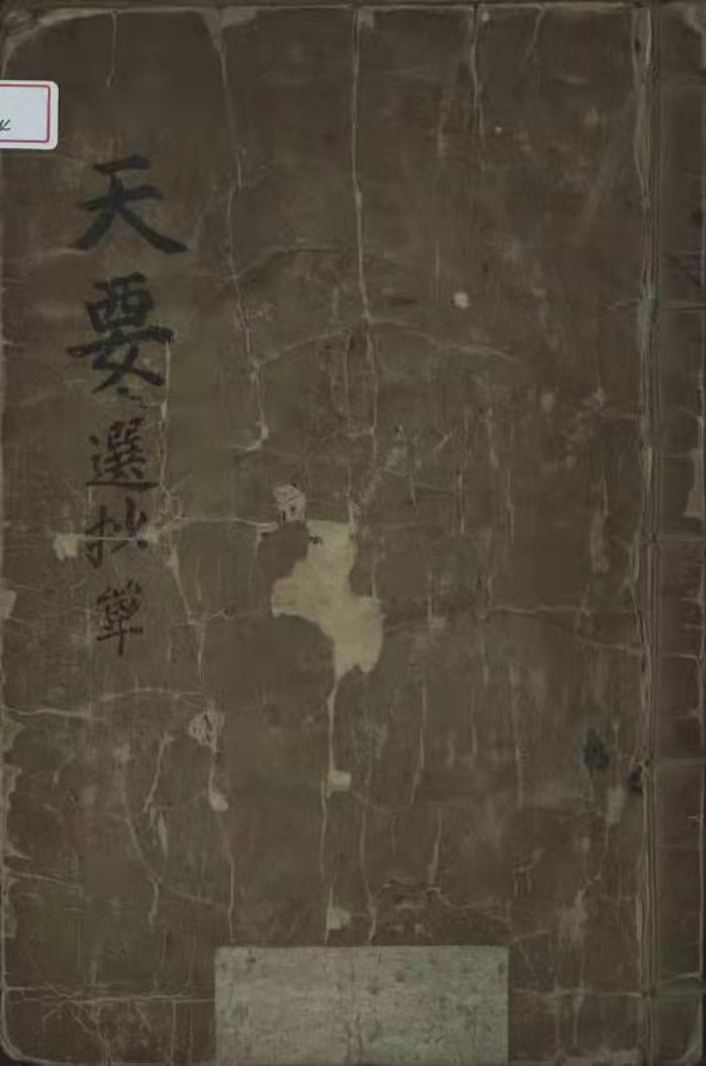 天要選抄單